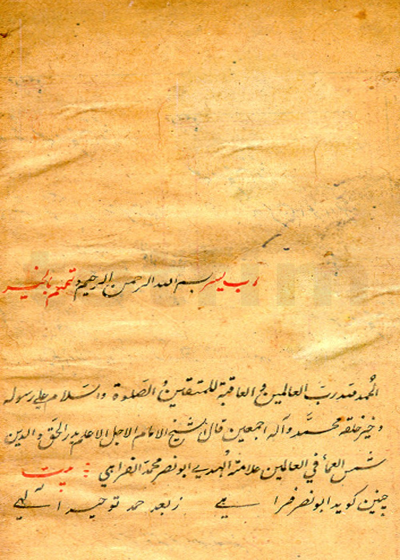 رب یسر بسم الله الرحمن الرحیم تمم بالخیر
الحمد لله رب العالمین و العاقبة للمتقین و الصلوة والسلام علی رسوله
و خیر خلقه محمد و آله اجمعین قال الشیخ الامام الاجل الاعلم بدر الحق و الدین
شمس العما فی العالمین علامة الهدی ابو نصر محمد الفراهی بیت
چنین کوید ابو نصر فراهی زبعد حمد توحید الهی